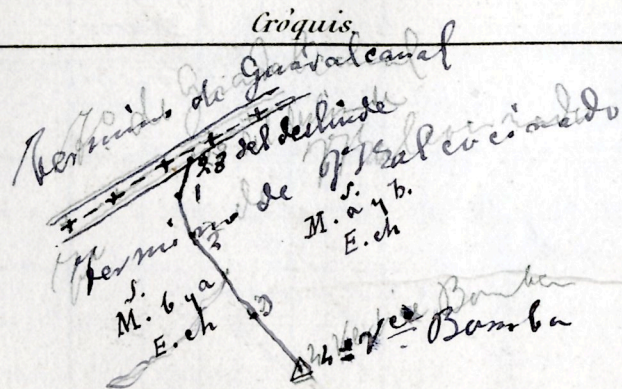 Cróquis
Término de Guadalcanal
23 del deslinde
1
Término de Malcocinado
s.
M. a y b.
E. ch
2
s.
M. b y a
E. ch
3
4 = Vce Bomba